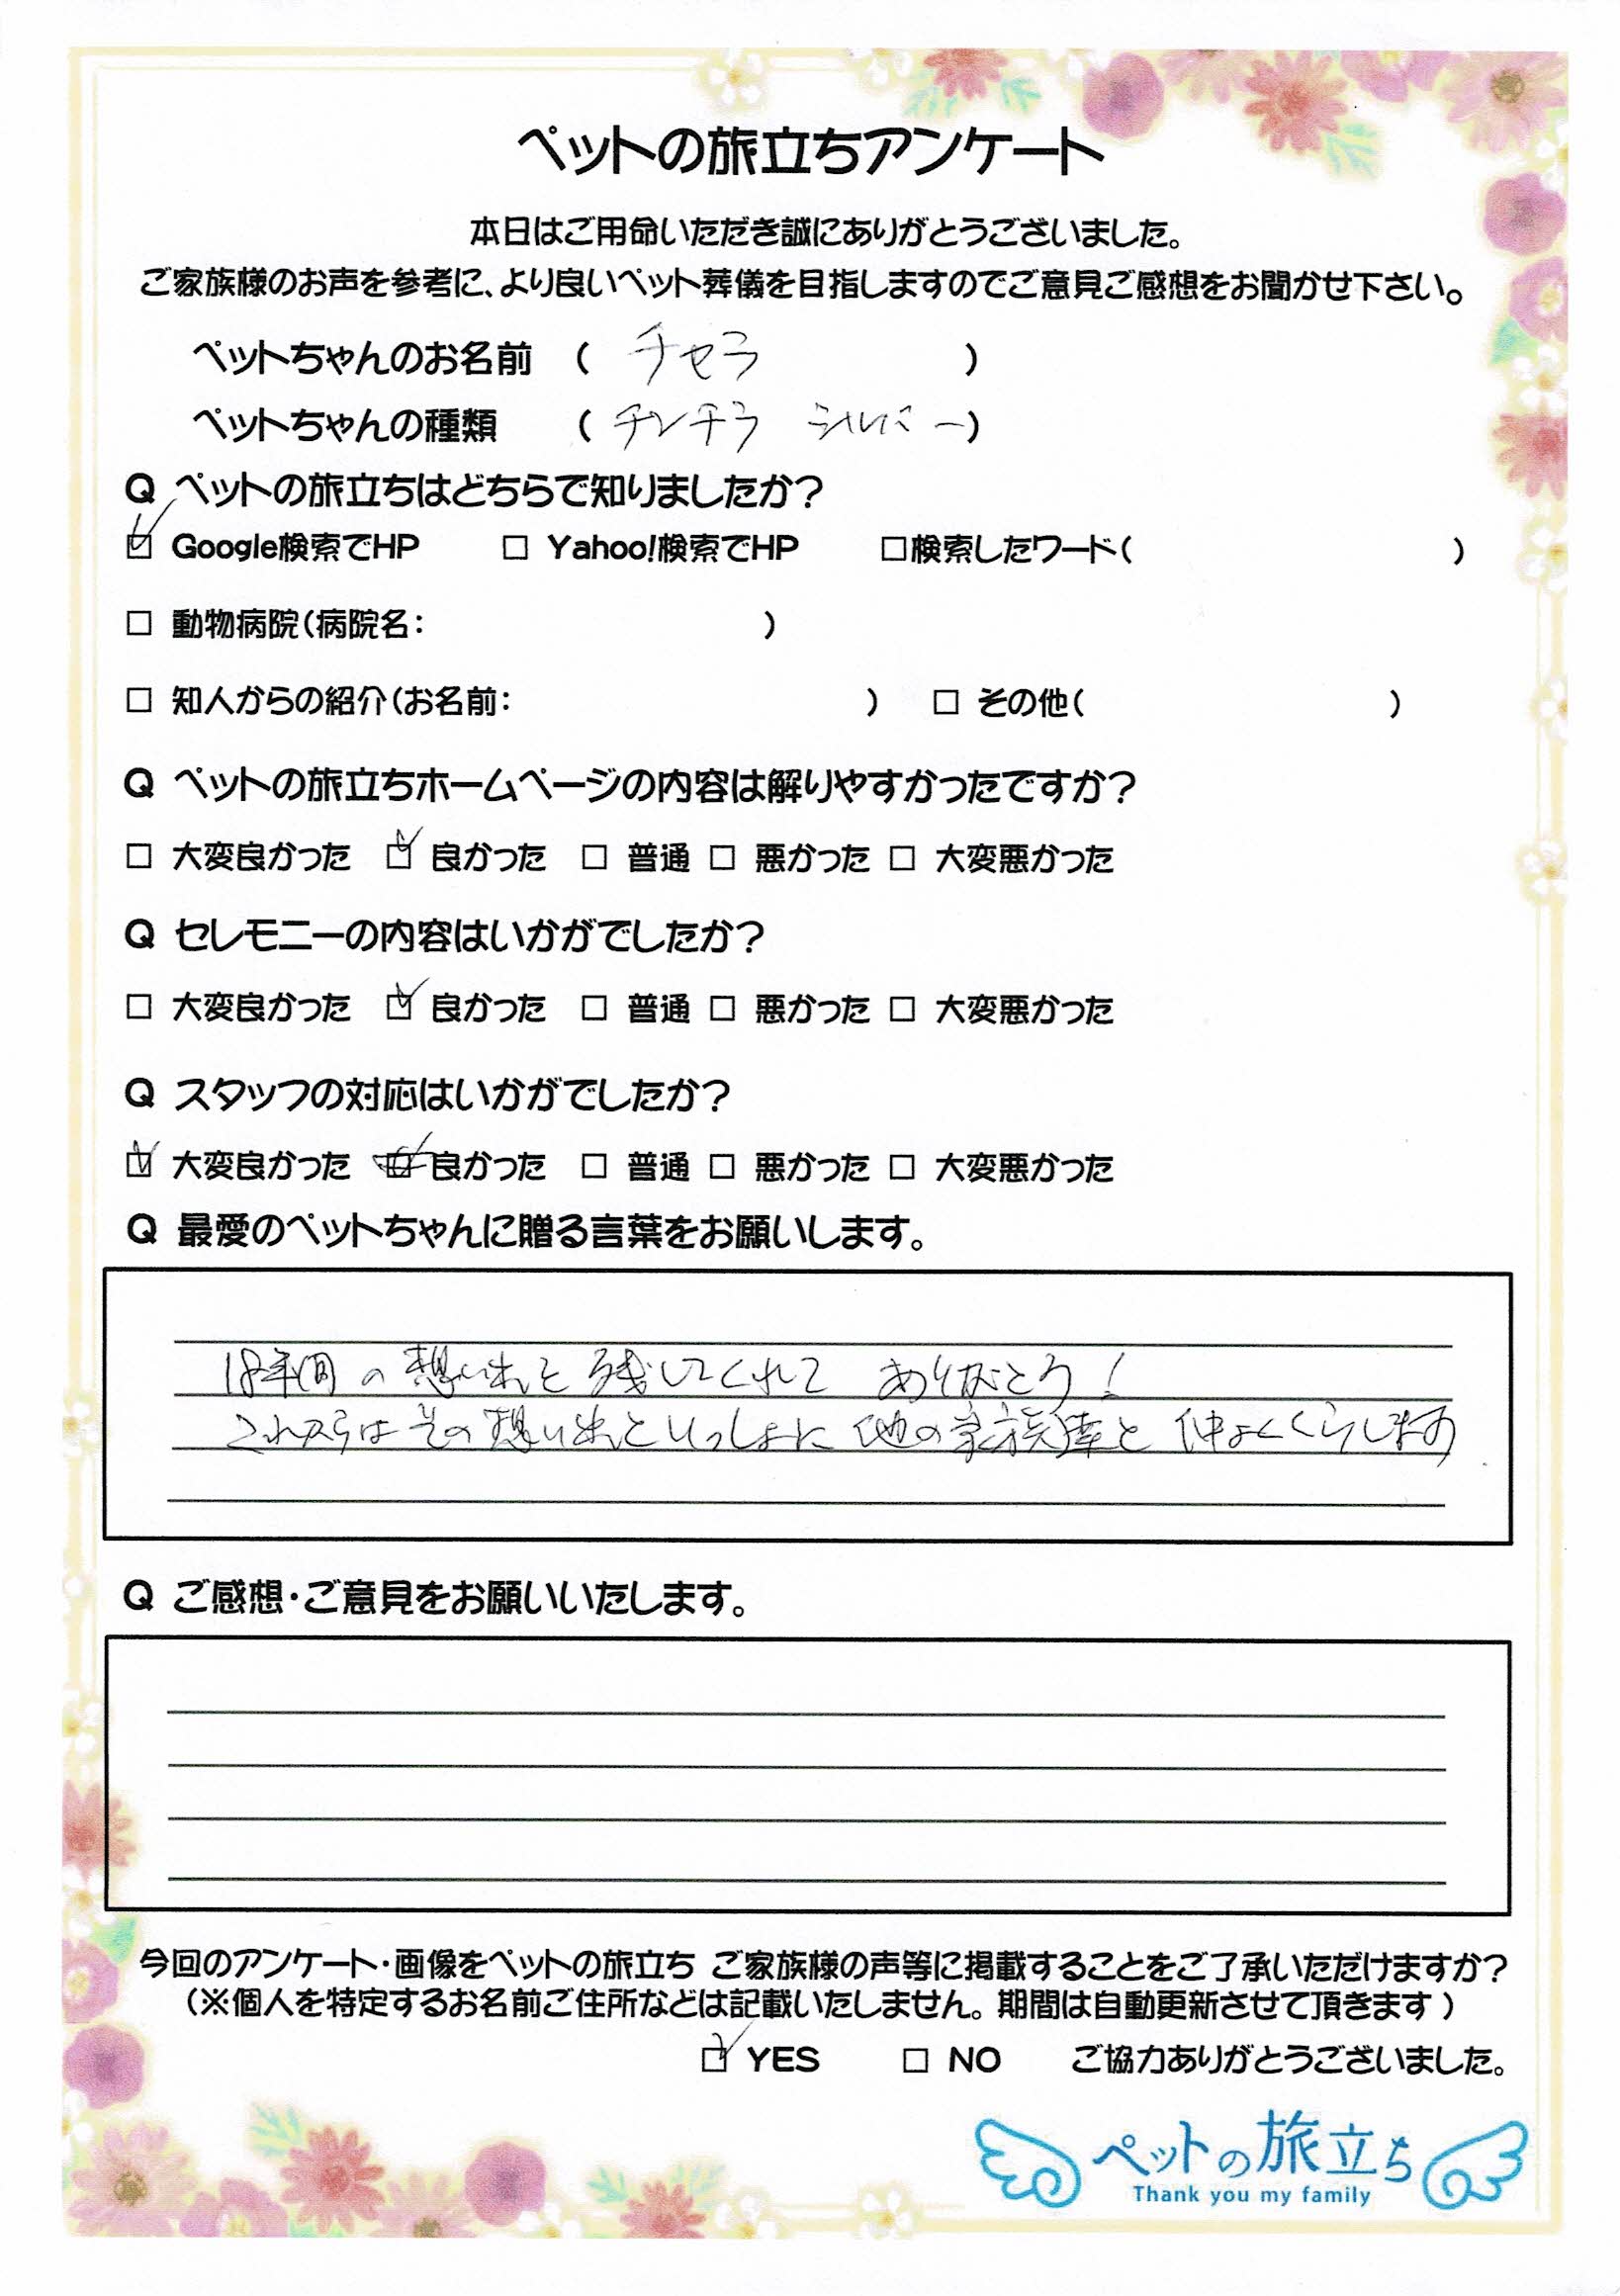 ペットの旅立ちアンケート
本日はご用命いただき誠にありがとうございました。
ご家族様のお声を参考に、より良いペット葬儀を目指しますのでご意見ご感想をお聞かせ下さい。
ペットちゃんのお名前 ( チセラ )
ペットちゃんの種類 ( チンチラ シルバー)
Q ペットの旅立ちはどちらで知りましたか?
☑ Google検索でHP □ Yahoo!検索でHP □検索したワード( )
□ 動物病院(病院名: )
□ 知人からの紹介(お名前: ) □ その他( )
Q ペットの旅立ちホームページの内容は解りやすかったですか?
□ 大変良かった ☑ 良かった □ 普通 □ 悪かった □ 大変悪かった
Q セレモニーの内容はいかがでしたか?
□ 大変良かった ☑ 良かった □ 普通 □ 悪かった □ 大変悪かった
Q スタッフの対応はいかがでしたか?
☑ 大変良かった ☑ 良かった □ 普通 □ 悪かった □ 大変悪かった
Q 最愛のペットちゃんに贈る言葉をお願いします。
18年間の想い出を残してくれて ありがとう!
これからはその想い出といっしょに 他の家族達と 仲よくくらします
Q ご感想・ご意見をお願いいたします。
今回のアンケート・画像をペットの旅立ち ご家族様の声等に掲載することをご了承いただけますか?
(※個人を特定するお名前ご住所などは記載いたしません。期間は自動更新させて頂きます)
☑ YES □ NO ご協力ありがとうございました。
ペットの旅立ち
Thank you my family